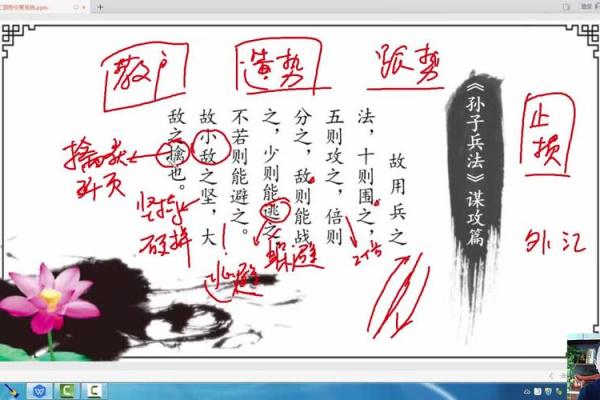 散户
造势
跟势
《孙子兵法》谋攻篇
故用兵之
法，十则围之，
五则攻之，倍则
分之，敌则能战
之，少则能逃之，
不若则能避之。
故小敌之坚，大
敌之擒也。
止
损
外汇
擒获
坚持
硬拼
逃避
躲避
2倍